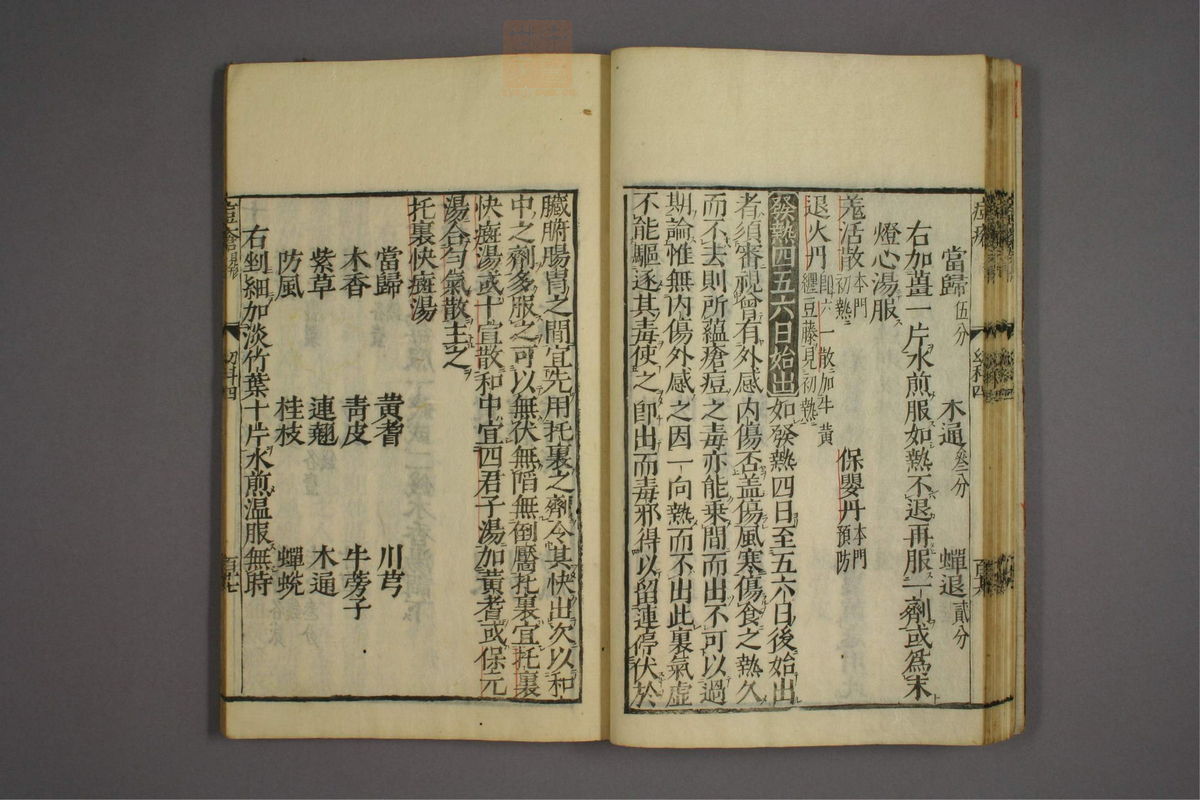 當歸伍分 木通叁分 蟬退貳分
右加薑一片水煎服如熱不退再服一劑或為末
燈心湯服
羗活散本門初熱 保嬰丹本門預防
退火丹即六一散加牛黄纒豆藤見初熱
發熱四五六日始出如發熱四日至五六日後始出
者須審視曾有外感內傷否盖傷風寒傷食之熱久
而不去則所蘊瘡痘之毒亦能乘間而出不可以過
期論惟無內傷外感之因一向熱而不出此裏氣虛
不能驅逐其毒使之即出而毒邪得以留連停伏於
臟腑腸胃之間宜先用托裏之劑令其快出次以和
中之劑多服之可以無伏無陷無倒靨托裏宜托裏
快癍湯或十宣散和中宜四君子湯加黄耆或保元
湯合勻氣散主之
托裏快癍湯
當歸 黄耆 川芎
木香 靑皮 牛蒡子
紫草 連翹 木通
防風 桂枝 蟬蛻
右剉細加淡竹葉十片水煎温服無時
幼科四